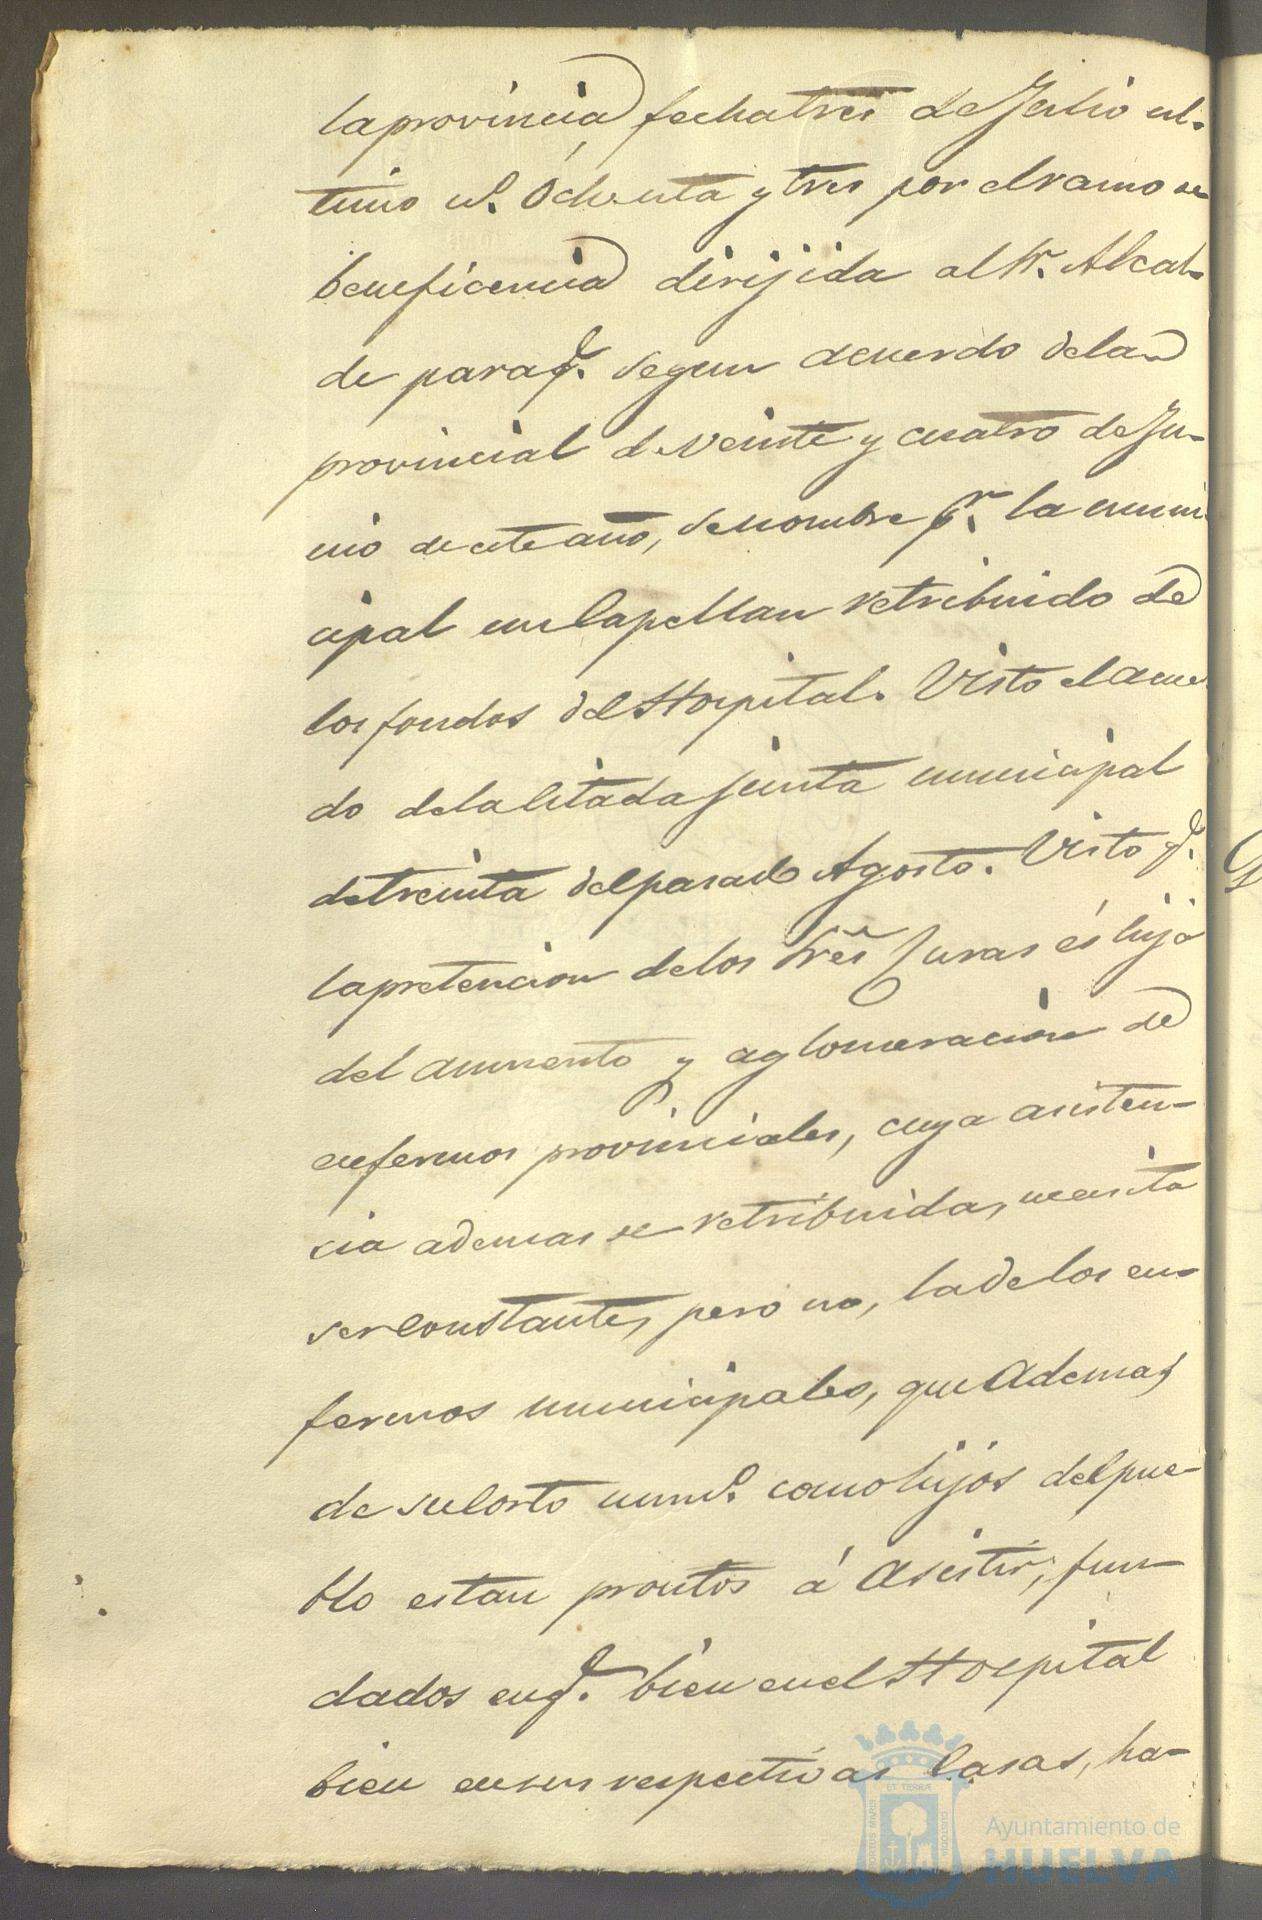 la provincia fecha tres de Julio ul-
timo n.º Ochenta y tres por el ramo de
beneficencia dirijida al Sr. Alcal-
de para q.e segun acuerdo de la
provincial de veinte y cuatro de Ju-
nio de este año, se nombre p.r la muni
cipal un Capellan retribuido de
los fondos del Hospital. Visto el acuer
do de la citada junta municipal
de treinta del pasado Agosto. Visto q.e
la pretencion de los Sres Curas és hija
del aumento y aglomeracion de
enfermos provinciales, cuya asisten-
cia ademas de retribuida, necesita
ser constante, pero no, la de los en-
fermos municipales, que Ademas
de su corto num.º como hijos del pue-
blo estan prontos á Asistir, fun-
dados en q.e bien en el Hospital
bien en sus respectivas Casas, ha-
PORTUS MARIS
ET TERRÆ
CUSTODIA
Ayuntamiento de
HUELVA